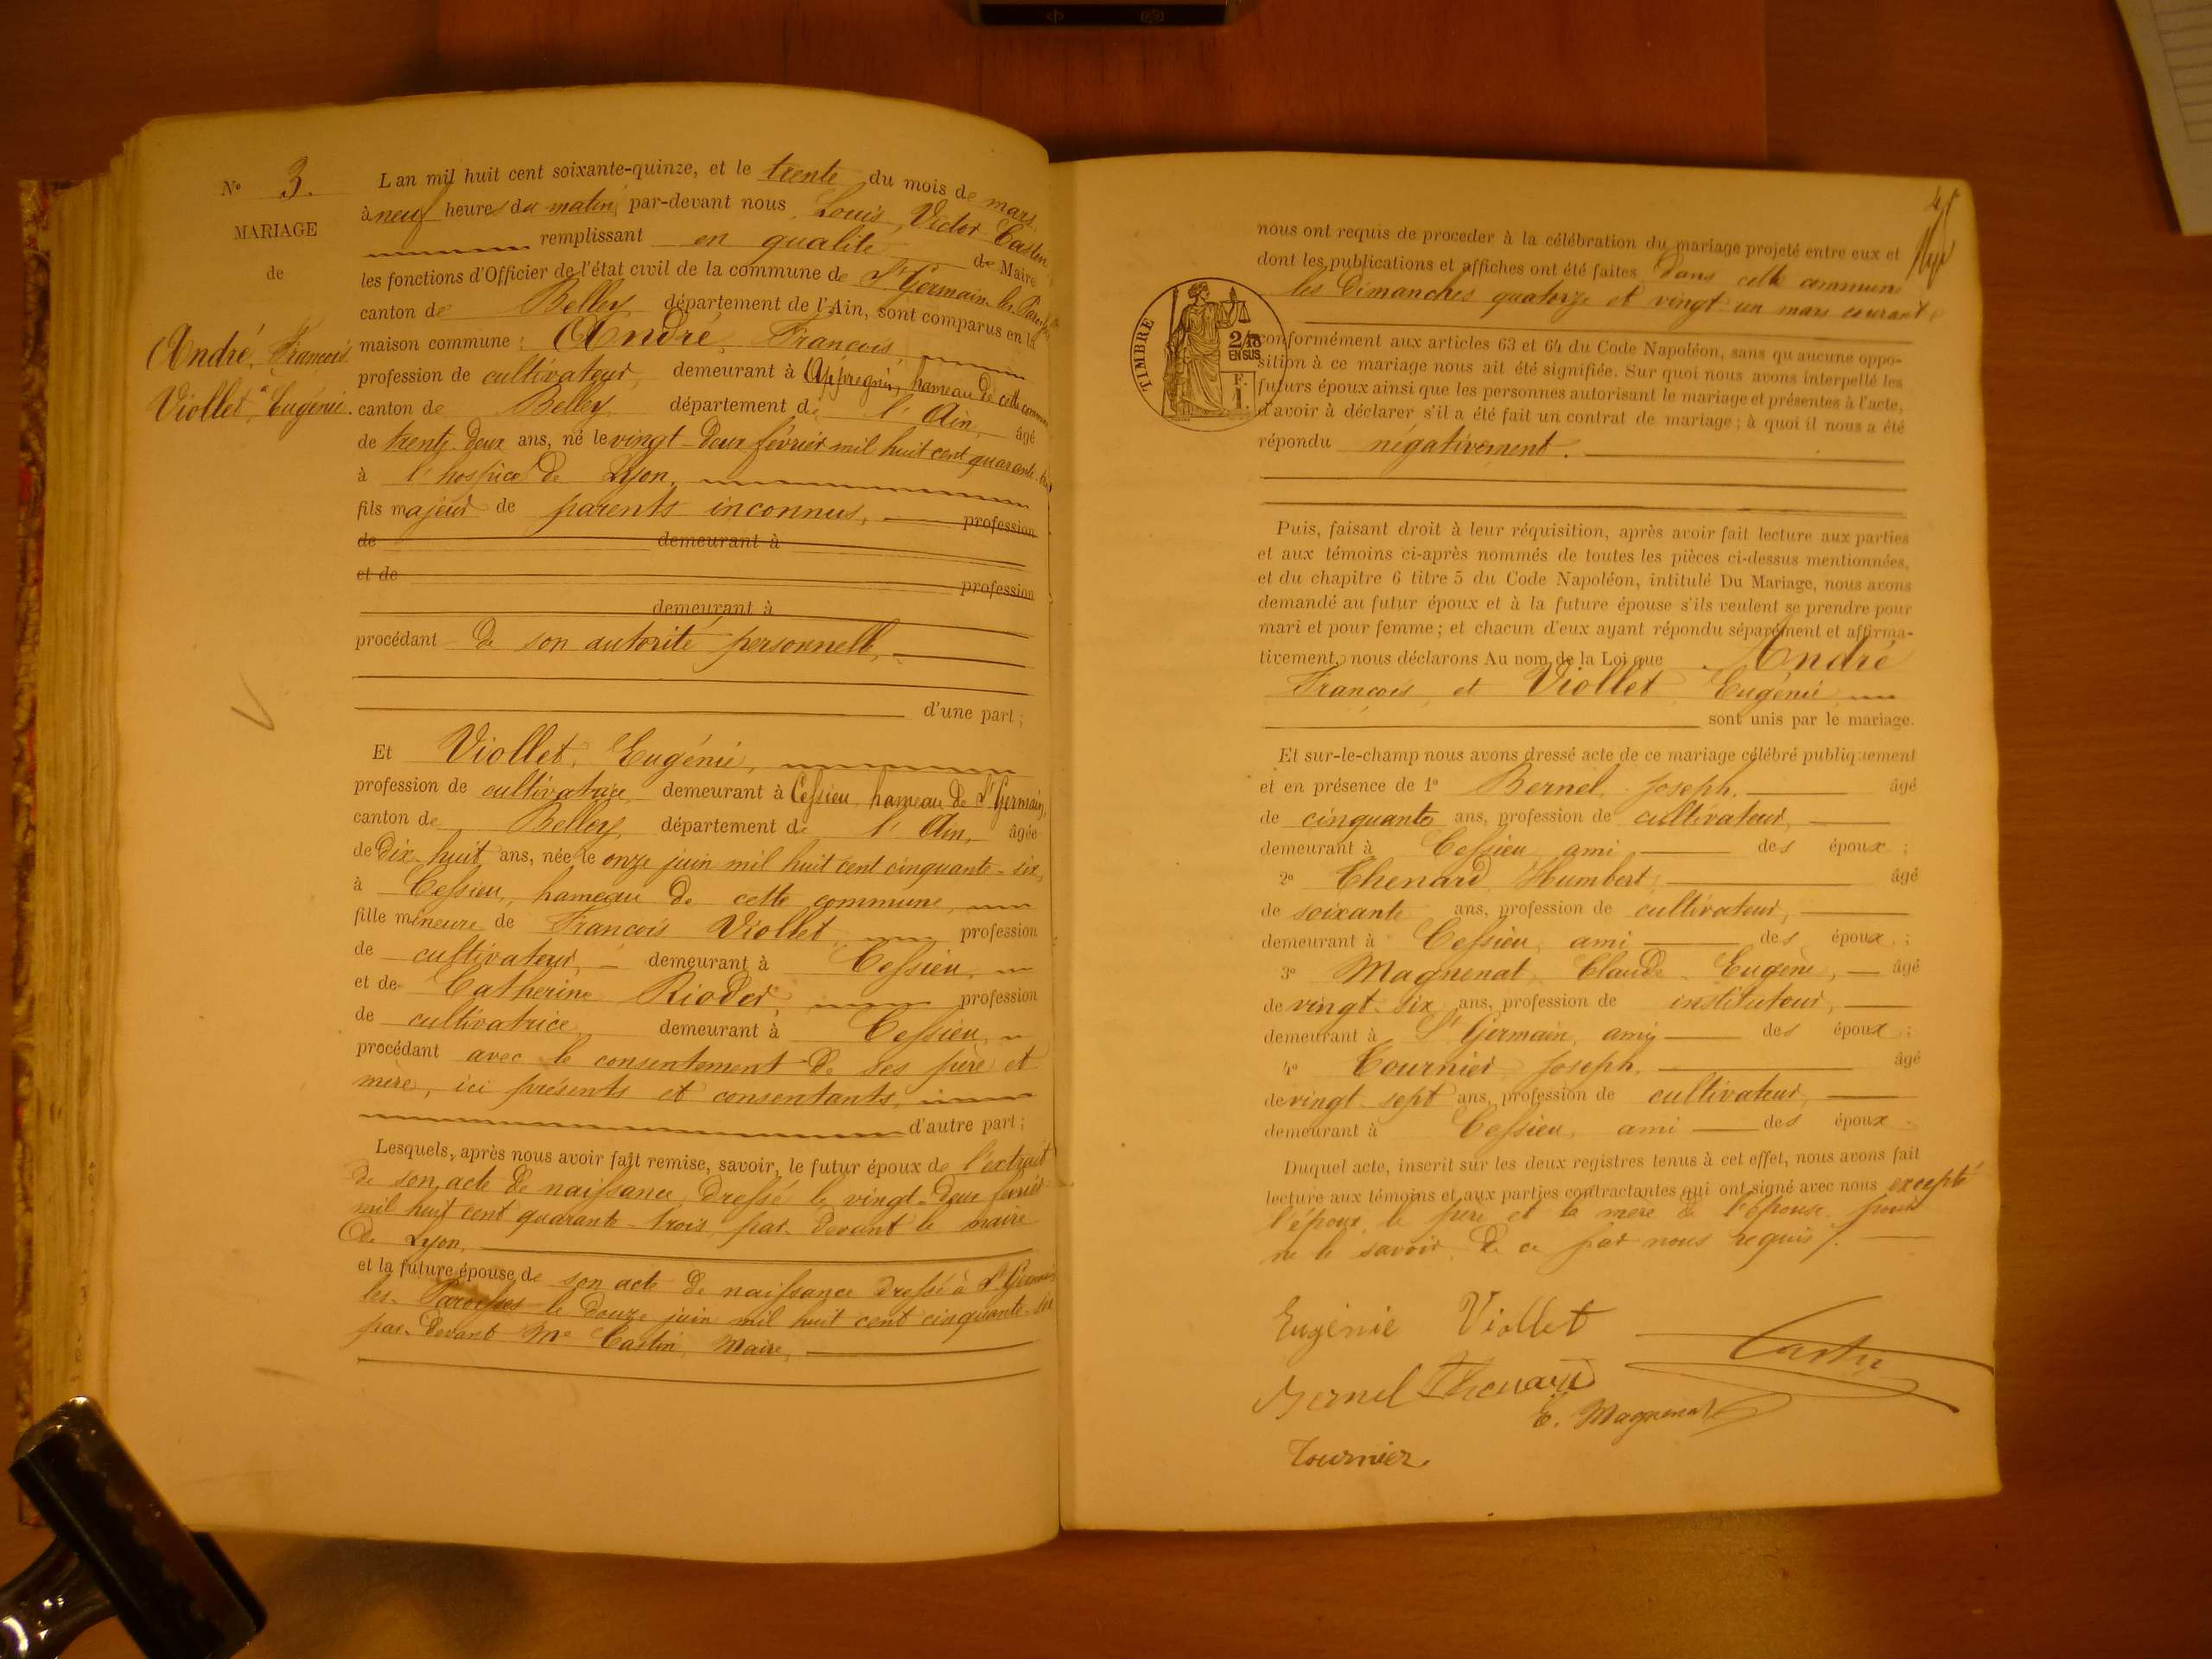 N° 3.
MARIAGE
de
André, François
&
Viollet Eugénie.
L'an mil huit cent soixante-quinze, et le trente du mois de mars
à neuf heures du matin, par-devant nous Louis, Victor Castin
remplissant en qualité de Maire
les fonctions d'Officier de l'état civil de la commune de St Germain-les-Paroisses
canton de Belley département de l'Ain, sont comparus en la
maison commune : André, François,
profession de cultivateur, demeurant à Appregnin, hameau de cette commune
canton de Belley département de l'Ain, âgé
de trente-deux ans, né le vingt-deux février mil huit cent quarante-trois
à l'hospice de Lyon,
fils majeur de parents inconnus, profession
de demeurant à
et de profession
demeurant à
procédant de son autorité personnelle,
d'une part ;
Et Viollet, Eugénie,
profession de cultivatrice demeurant à Cessieu, hameau de St Germain,
canton de Belley département de l'Ain, âgée
de dix-huit ans, née le onze juin mil huit cent cinquante-six,
à Cessieu, hameau de cette commune,
fille mineure de François Viollet, profession
de cultivateur, demeurant à Cessieu,
et de Catherine Riodet, profession
de cultivatrice demeurant à Cessieu,
procédant avec le consentement de ses père et
mère, ici présents et consentants,
d'autre part ;
Lesquels, après nous avoir fait remise, savoir, le futur époux de l'extrait
de son acte de naissance dressé le vingt-deux février
mil huit cent quarante-trois par-devant le maire
de Lyon,
et la future épouse de son acte de naissance dressé à St Germain
les-Paroisses le douze juin mil huit cent cinquante-six
par-devant Me Castin, Maire,
nous ont requis de proceder à la célébration du mariage projeté entre eux et
dont les publications et affiches ont été faites dans cette commune
les Dimanches quatorze et vingt-un mars courant
TIMBRE
2/10
EN SUS
F.
1.
conformément aux articles 63 et 64 du Code Napoléon, sans qu'aucune oppo-
sition à ce mariage nous ait été signifiée. Sur quoi nous avons interpellé les
futurs époux ainsi que les personnes autorisant le mariage et présentes à l'acte,
d'avoir à déclarer s'il a été fait un contrat de mariage ; à quoi il nous a été
répondu négativement.
Puis, faisant droit à leur réquisition, après avoir fait lecture aux parties
et aux témoins ci-après nommés de toutes les pièces ci-dessus mentionnées,
et du chapitre 6 titre 5 du Code Napoléon, intitulé Du Mariage, nous avons
demandé au futur époux et à la future épouse s'ils veulent se prendre pour
mari et pour femme ; et chacun d'eux ayant répondu séparément et affirma-
tivement, nous déclarons Au nom de la Loi que André
François, et Viollet Eugénie
sont unis par le mariage.
Et sur-le-champ nous avons dressé acte de ce mariage célébré publiquement
et en présence de 1° Bernel, Joseph, âgé
de cinquante ans, profession de cultivateur,
demeurant à Cessieu, ami des époux ;
2° Thenard, Humbert, âgé
de soixante ans, profession de cultivateur,
demeurant à Cessieu, ami des époux ;
3° Magnenat, Claude Eugène, âgé
de vingt-six ans, profession de instituteur,
demeurant à St Germain, ami des époux ;
4° Tournier Joseph, âgé
de vingt-sept ans, profession de cultivateur,
demeurant à Cessieu, ami des époux
Duquel acte, inscrit sur les deux registres tenus à cet effet, nous avons fait
lecture aux témoins et aux parties contractantes qui ont signé avec nous excepté
l'époux, le père et la mère de l'épouse, pour
ne le savoir, de ce par nous requis.
Eugénie Viollet
Castin
Bernel Thenard
E. Magnenat
Tournier.